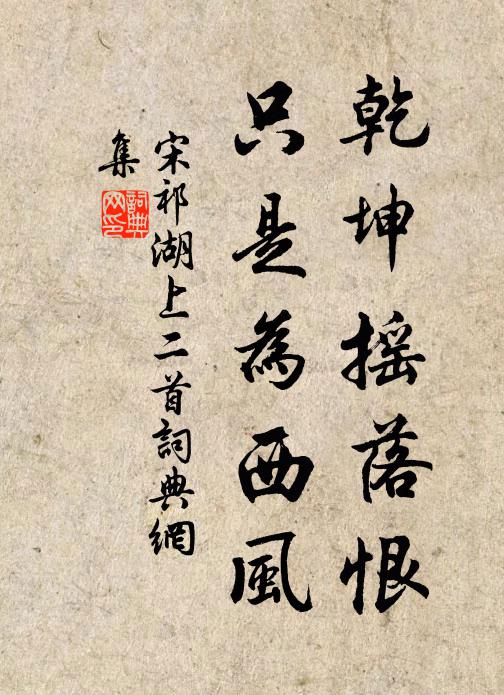 乾坤摇落恨
只是為西風
宋祁湖上二首詞典網
集
詞典
网印